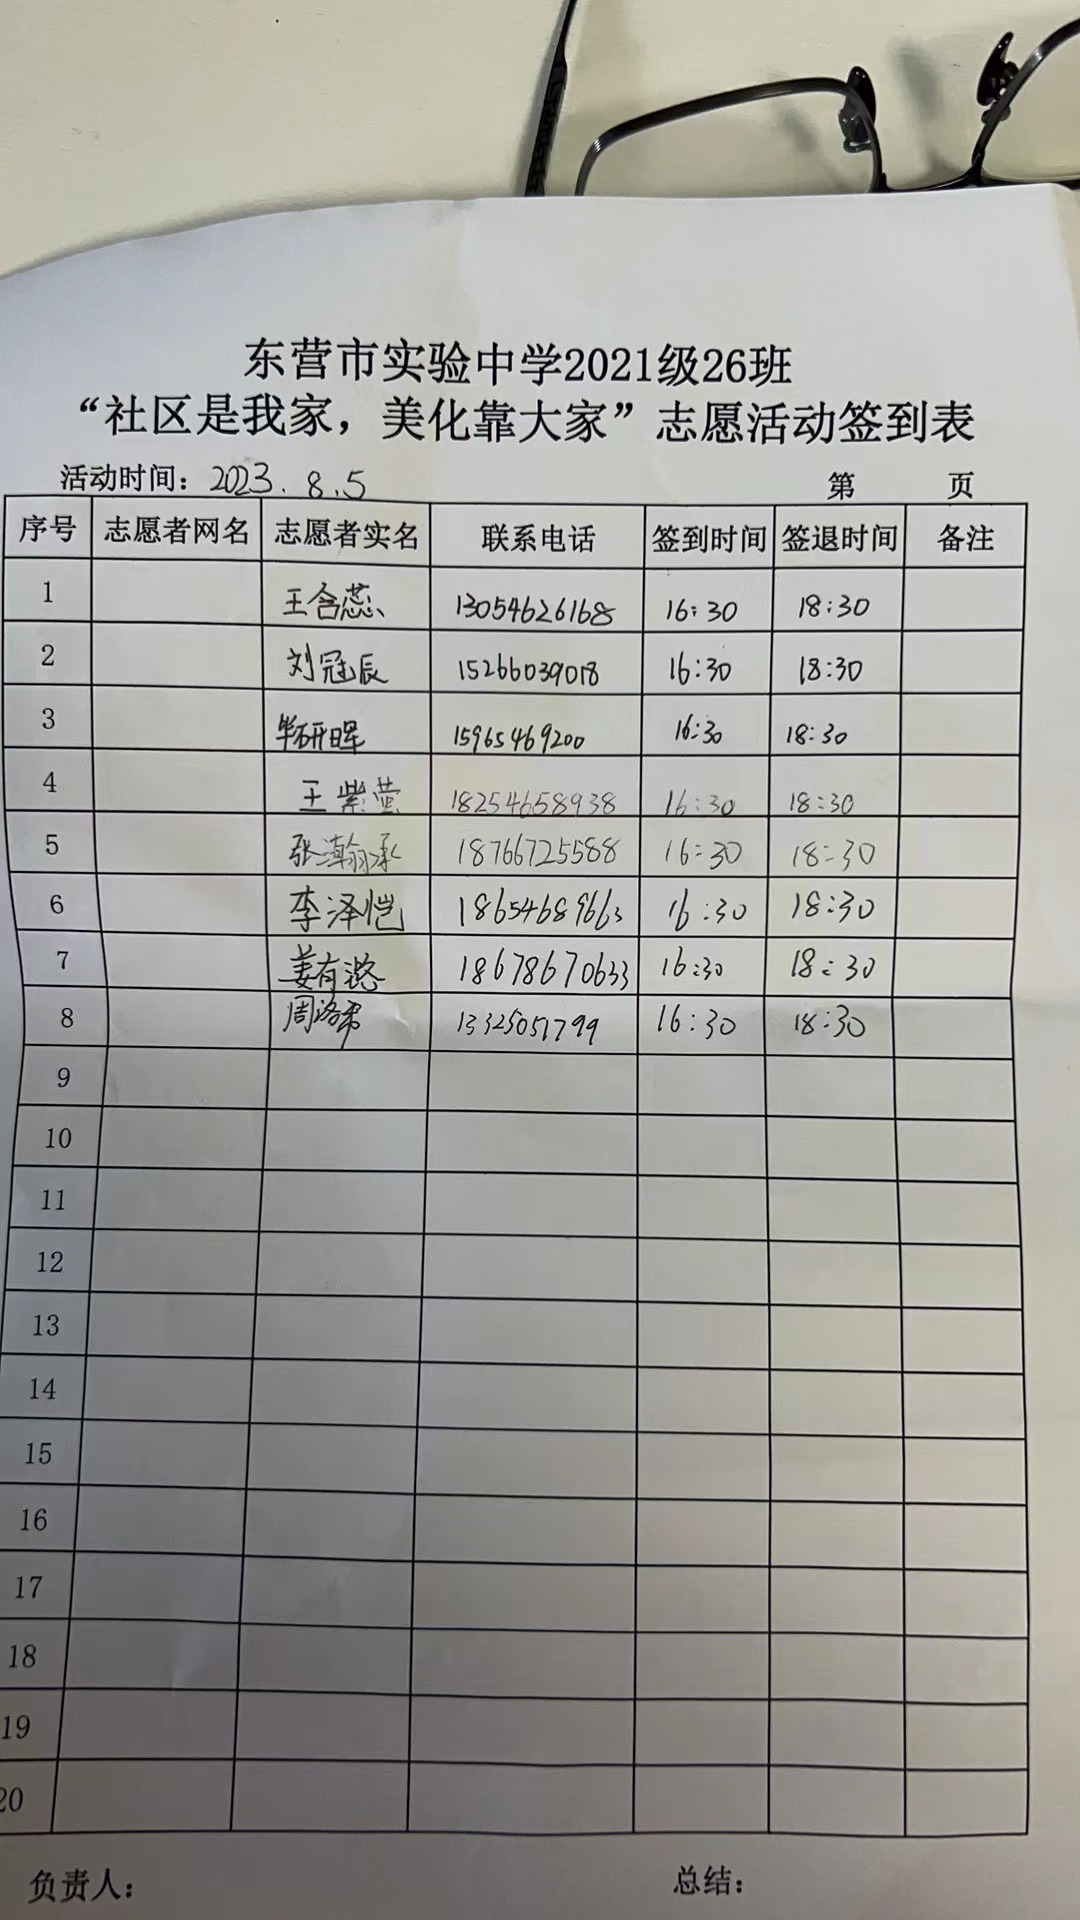 东营市实验中学2021级26班
“社区是我家，美化靠大家”志愿活动签到表
活动时间：2023.8.5 第 页
序号 志愿者网名 志愿者实名 联系电话 签到时间 签退时间 备注
1 王含蕊 13054626168 16:30 18:30
2 刘冠辰 15266039018 16:30 18:30
3 毕研晖 15965469200 16:30 18:30
4 王紫萱 18254658938 16:30 18:30
5 张瀚承 18766725588 16:30 18:30
6 李泽恺 18654689663 16:30 18:30
7 姜有潞 18678670633 16:30 18:30
8 周洛希 13325051799 16:30 18:30
9
10
11
12
13
14
15
16
17
18
19
20
负责人： 总结：